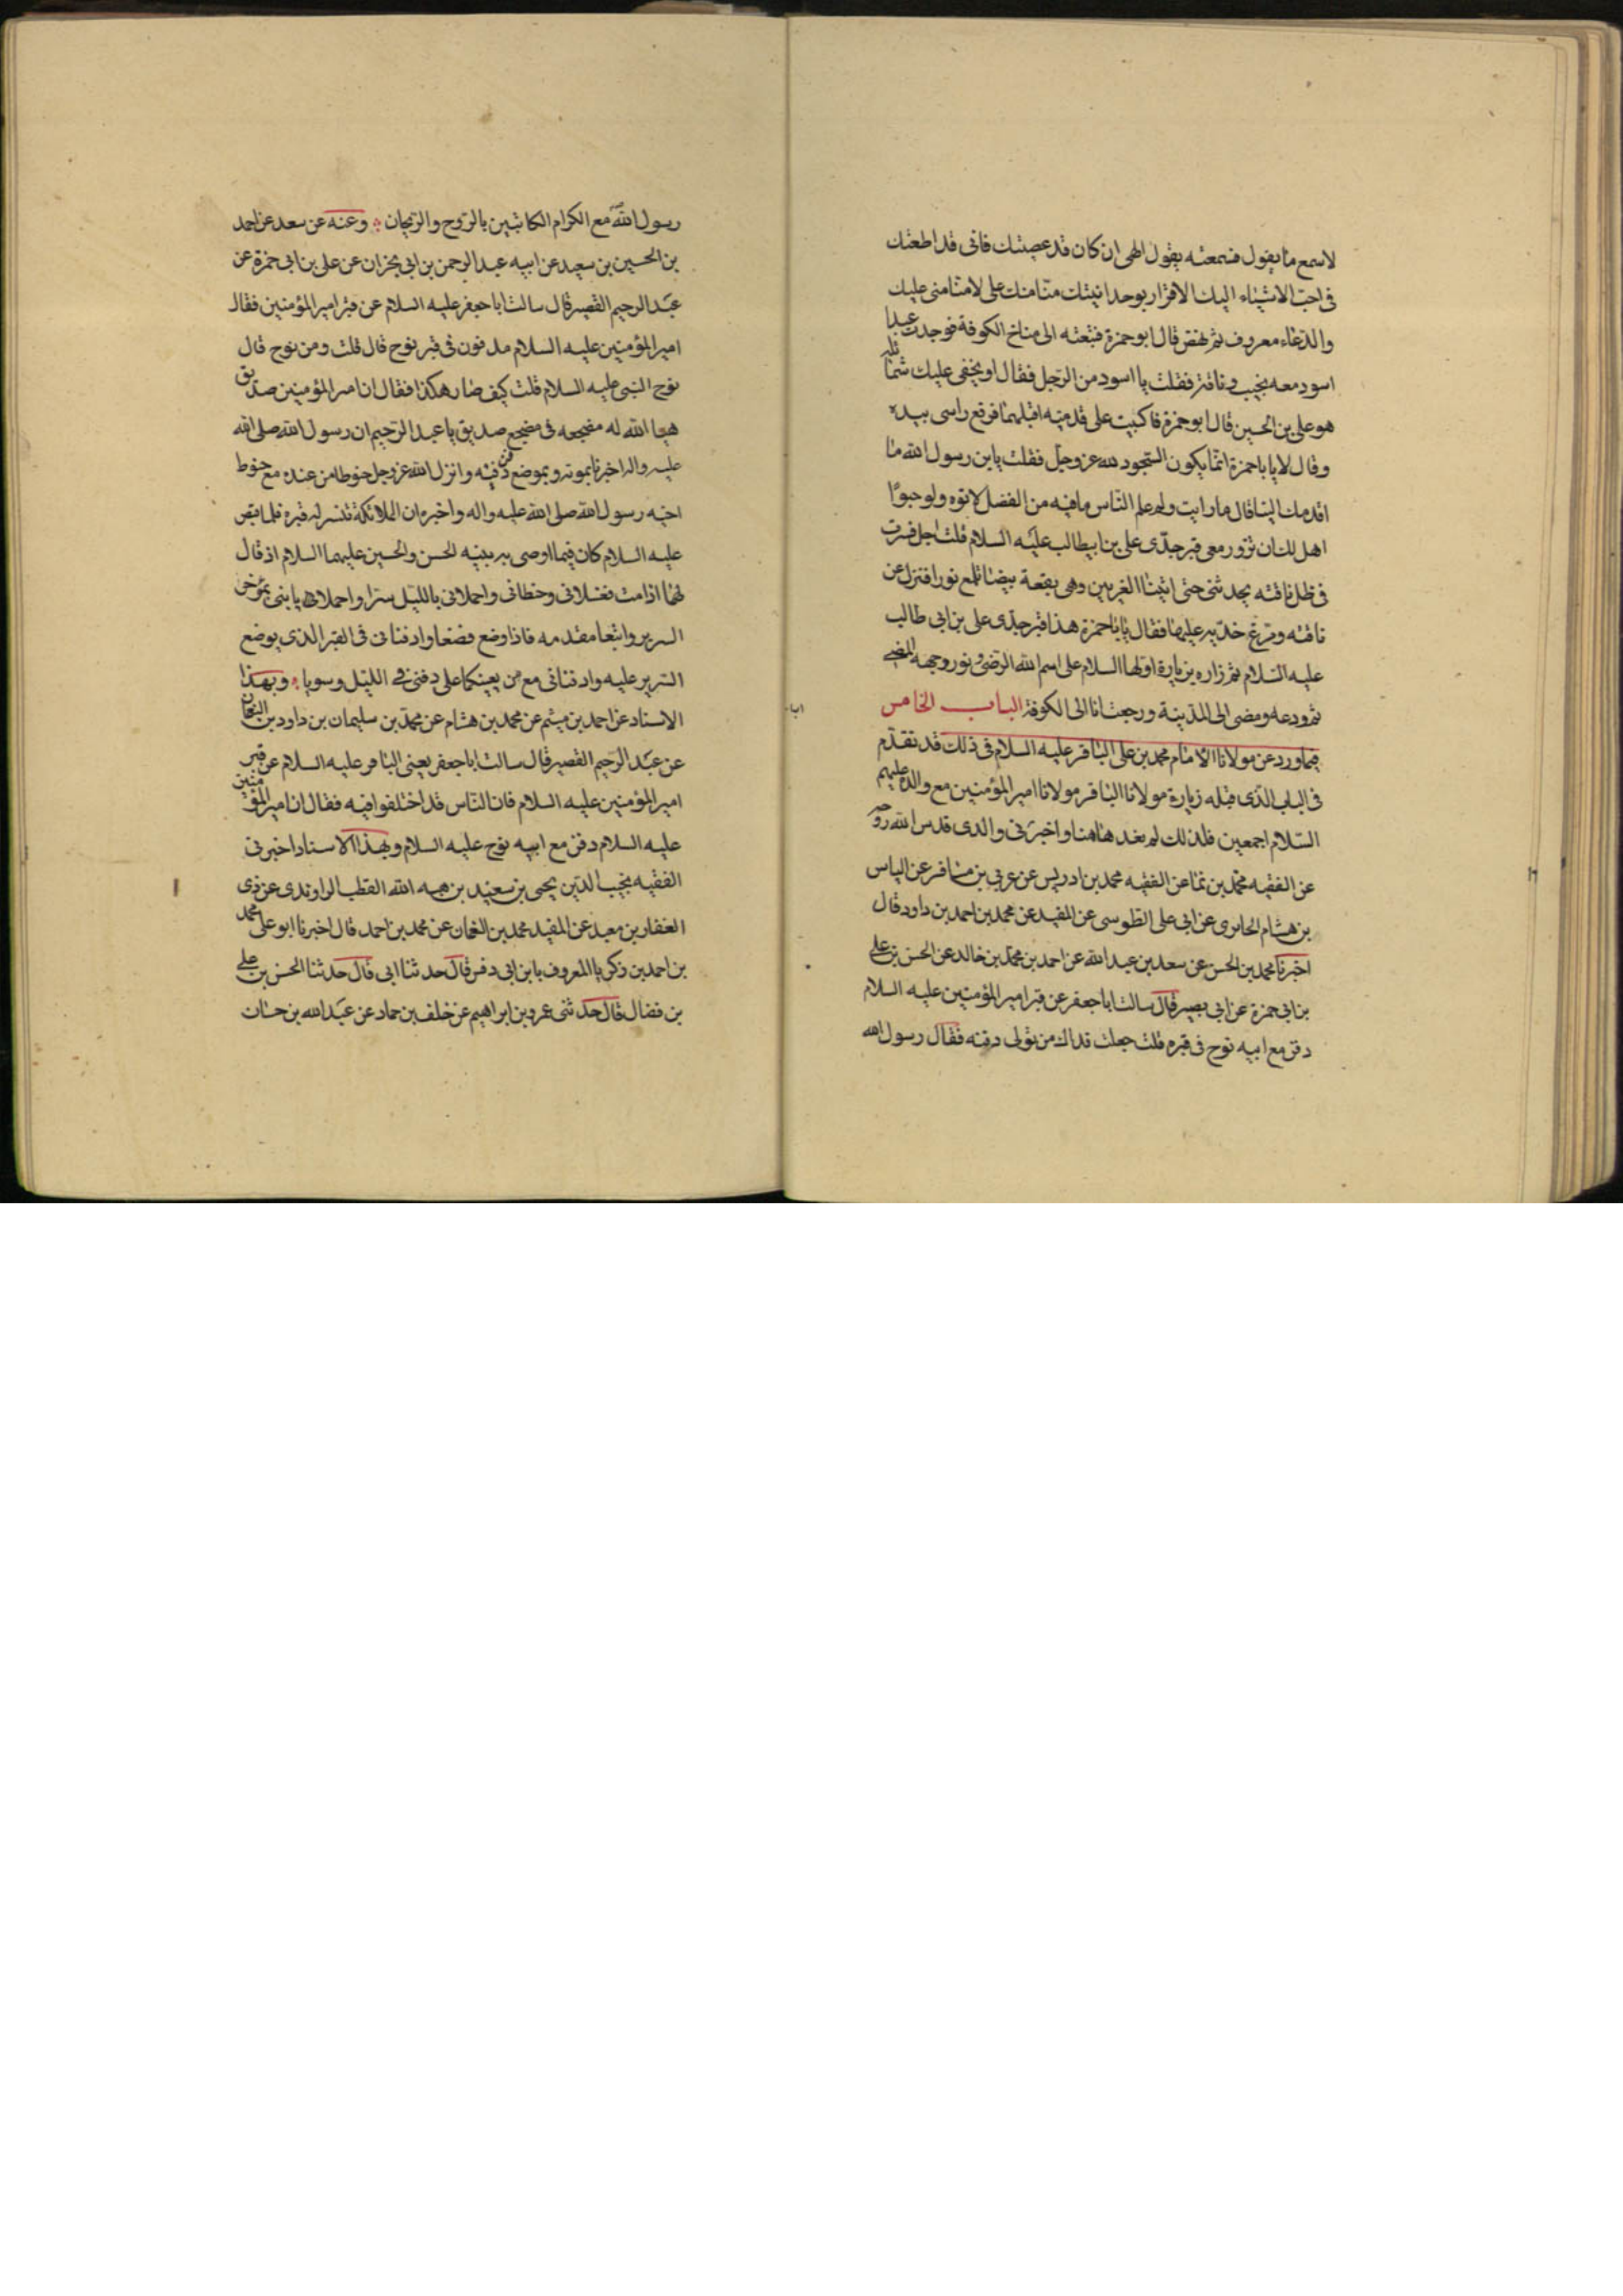 لاسمع ما يقول فسمعته يقول الهى ان كان قد عصيتك فانى قد اطعتك
فى احب الاشياء اليك الاقرار بوحدانيتك منّا منك على لا منّا منى عليك
والدعاء معروف ثم نهض قال ابو حمزة فتبعته الى مناخ الكوفة فوجدت عبدا
اسود معه نجيب و ناقة فقلت يا اسود من الرجل فقال او يخفى عليك شمائله
هو على بن الحسين قال ابو حمزة فاكببت على قدميه اقبلهما فرفع راسى بيده
وقال لا يا با حمزة انما يكون السجود لله عز وجل فقلت يابن رسول الله ما
اقدمك الينا قال ما رايت ولو علم الناس ما فيه من الفضل لاتوه ولو حبوًا
هل لك ان تزور معى قبر جدّى على بن ابيطالب عليه السلام قلت اجل فسرت
فى ظل ناقته يحدثنى حتى اتينا الغريين وهى بقعة بيضا تلمع نورا فنزل عن
ناقته ومرّغ خدّيه عليها فقال يا با حمزة هذا قبر جدّى على بن ابى طالب
عليه السلام ثم زاره بزيارة اولها السلام على اسم الله الرضى و نور وجهه المضى
ثم ودعه ومضى الى المدينة ورجعت انا الى الكوفة الباب الخامس
فيما ورد عن مولانا الامام محمد بن على الباقر عليه السلام فى ذلك قد تقدّم
فى الباب الذى قبله زيارة مولانا الباقر مولانا امير المؤمنين مع والده عليهم
السلام اجمعين فلذلك لم نعد هاهنا واخبرنى والدى قدس الله روحه
عن الفقيه محمد بن نما عن الفقيه محمد بن ادريس عن عربى بن مسافر عن الياس
بن هشام الحايرى عن ابى على الطوسى عن المفيد عن محمد بن احمد بن داود قال
اخبرنا محمد بن الحسن عن سعد بن عبد الله عن احمد بن محمد بن خالد عن الحسن بن على
بن ابى حمزة عن ابى بصير قال سالت ابا جعفر عن قبر امير المؤمنين عليه السلام
دفن مع ابيه نوح فى قبره قلت جعلت فداك من تولى دفنه فقال رسول الله
رسول الله مع الكرام الكاتبين بالروح والريحان وعنه عن سعد عن احمد
بن الحسين بن سعيد عن ابيه عبد الرحمن بن ابى نجران عن على بن ابى حمزة عن
عبد الرحيم القصير قال سالت ابا جعفر عليه السلام عن قبر امير المؤمنين فقال
امير المؤمنين عليه السلام مدفون فى قبر نوح قال قلت ومن نوح قال
نوح النبى عليه السلام قلت كيف صار هكذا فقال ان امير المؤمنين صديق
هيا الله له مضجعه فى مضجع صديق يا عبد الرحيم ان رسول الله صلى الله
عليه واله اخبرنا بموته وبموضع دفنه وانزل الله عز وجل حنوطا من عنده مع حنوط
اخيه رسول الله صلى الله عليه واله واخبره ان الملائكة تنشر له قبره فلما قبض
عليه السلام كان فيما اوصى به بنيه الحسن والحسين عليهما السلام اذ قال
لهما اذا مت فغسلانى وحنطانى واحملانى بالليل سترا واحملا يا بنى بمؤخر
السرير واتبعا مقدمه فاذا وضع فضعا وادفنانى فى القبر الذى يوضع
السرير عليه وادفنانى مع من يعينكما على دفنى فى الليل وسويا وبهذا
الاسناد عن احمد بن ميثم عن محمد بن هشام عن محمد بن سليمان بن داود بن النعمان
عن عبد الرحيم القصير قال سالت ابا جعفر يعنى الباقر عليه السلام عن قبر
امير المؤمنين عليه السلام فان الناس قد اختلفوا فيه فقال ان امير المؤمنين
عليه السلام دفن مع ابيه نوح عليه السلام وبهذا الاسناد اخبرنى
الفقيه نجيب الدين يحيى بن سعيد بن هبه الله القطب الراوندى عن ذى
الفقار بن معبد عن المفيد محمد بن النعمان عن محمد بن احمد قال اخبرنا ابو على محمد
بن احمد بن زكريا المعروف بابن ابى دفس قال حدثنا ابى قال حدثنا الحسن بن على
بن فضال قال حدثنى عمرو بن ابراهيم عن خلف بن حماد عن عبد الله بن حسان